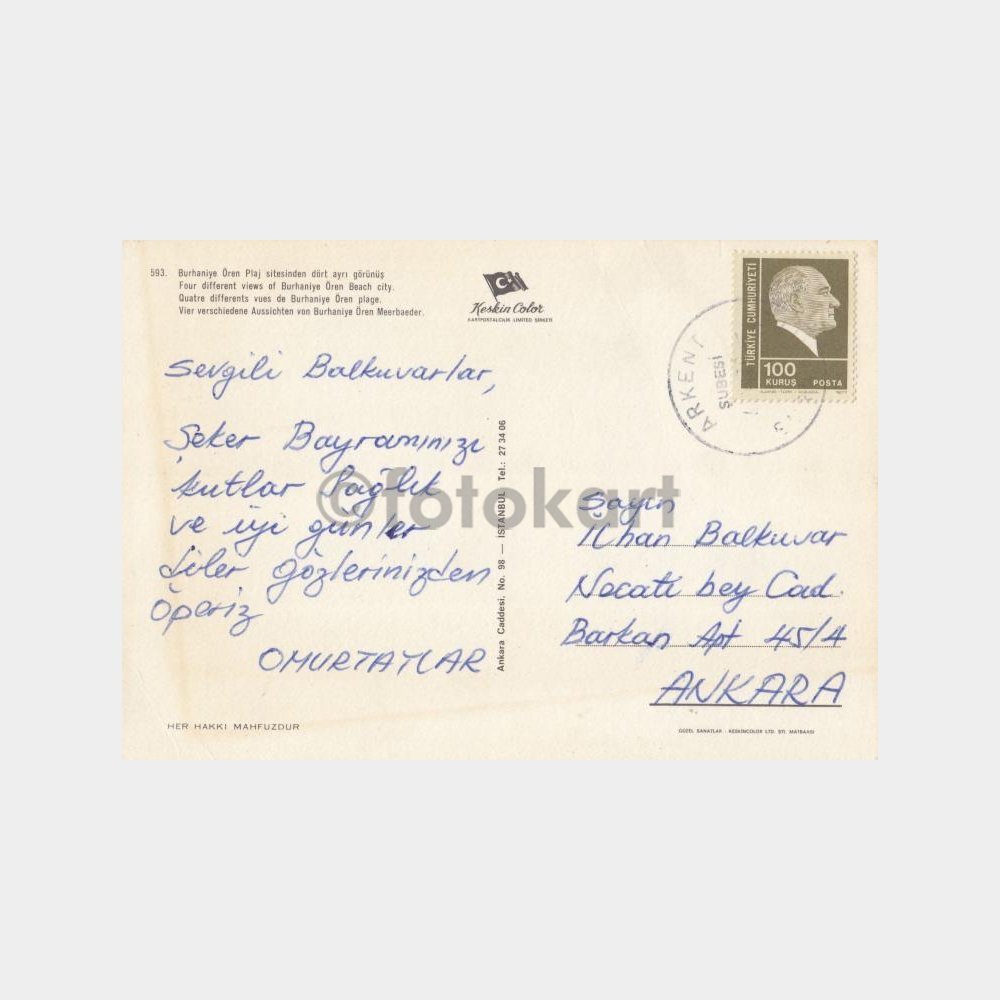 593. Burhaniye Ören Plaj sitesinden dört ayrı görünüş
Four different views of Burhaniye Ören Beach city.
Quatre differents vues de Burhaniye Ören plage.
Vier verschiedene Aussichten von Burhaniye Ören Meerbaeder.
Keskin Color
KARTPOSTALCILIK LIMITED ŞİRKETİ
TÜRKİYE CUMHURİYETİ
100
KURUŞ POSTA
ŞUBESİ
Sevgili Balkuvarlar,
Şeker Bayramınızı
kutlar Sağlık
ve iyi günler
diler gözlerinizden
öperiz
OMURTATLAR
©fotokart
Ankara Caddesi, No. 98 — İSTANBUL Tel.: 27 34 06
Sayın
İlhan Balkuvar
Necati bey Cad.
Barkan Apt 45/4
ANKARA
HER HAKKI MAHFUZDUR
GÜZEL SANATLAR - KESKINCOLOR LTD. ŞTİ. MATBAASI